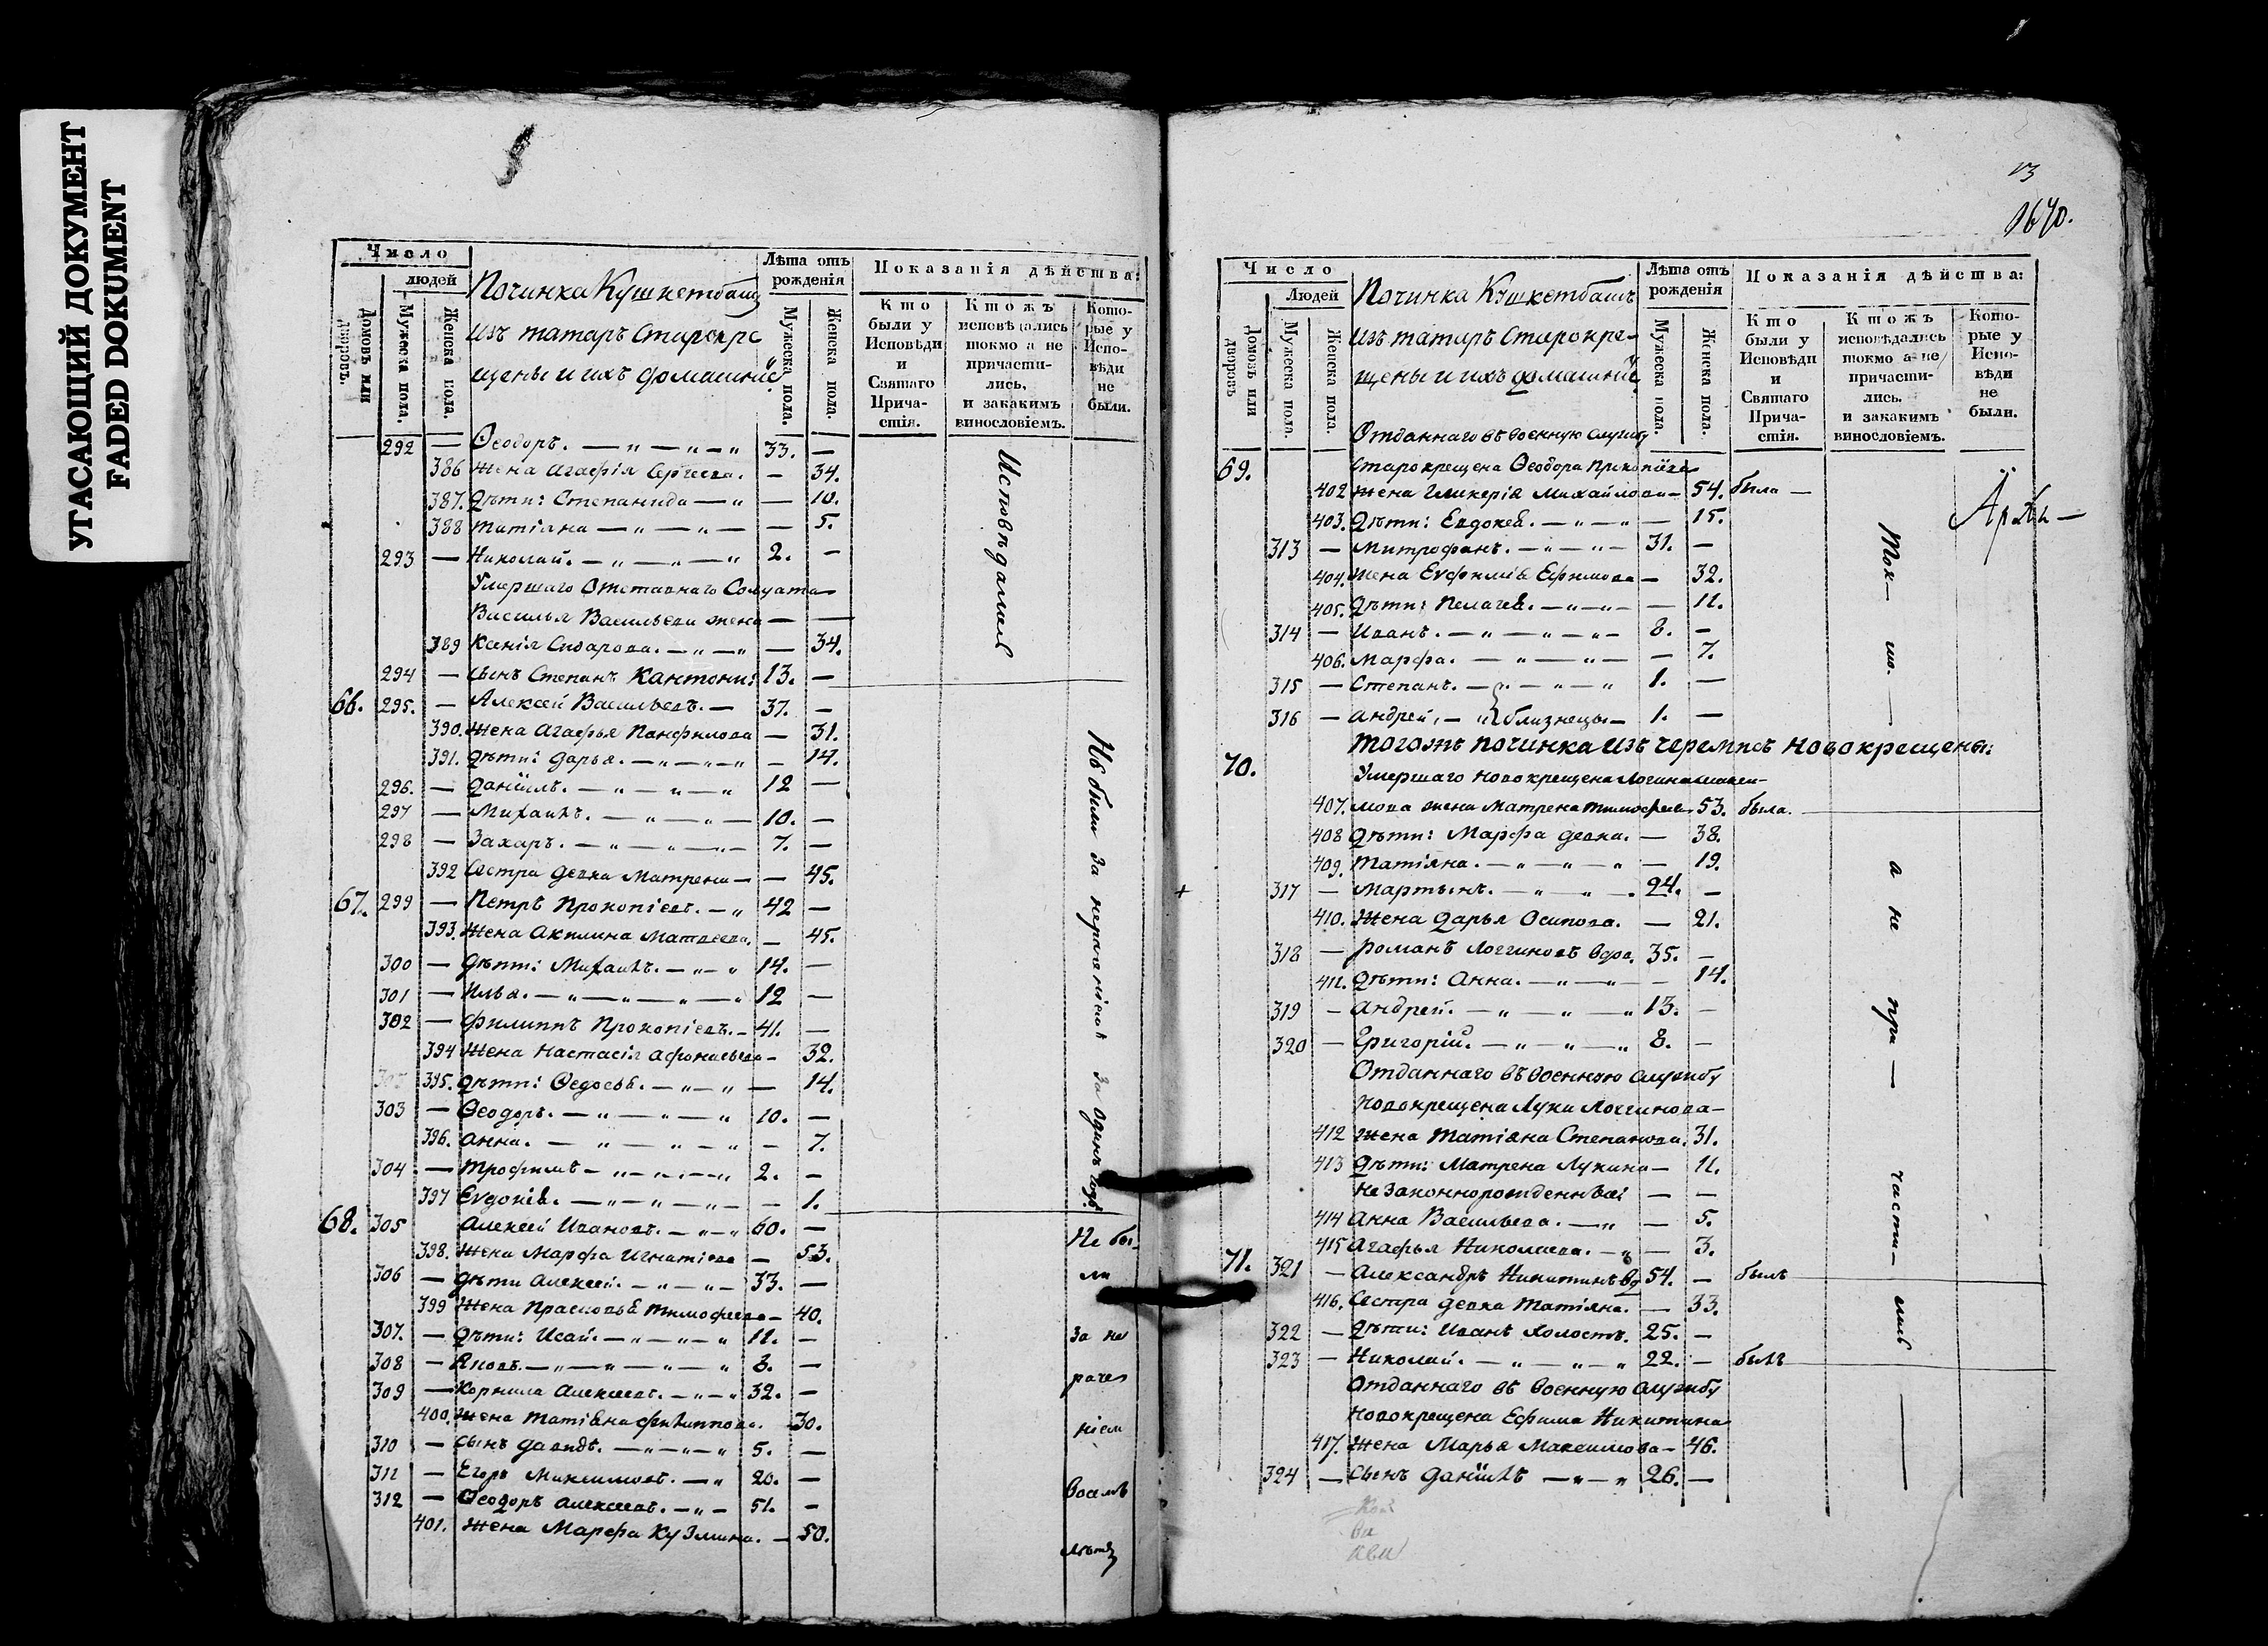 УГАСАЮЩИЙ ДОКУМЕНТ
FADED DOKUMENT
Число
людей
Домовъ или дворовъ.
Мужеска пола.
Женска пола.
Починка Кушкетбашъ
изъ татаръ Старокре
щены и ихъ домашніе
Лѣта отъ рожденія
Мужеска пола.
Женска пола.
Показанія дѣйства:
Кто были у Исповѣди и Святаго Прича-стія.
Ктожъ исповѣдались токмо а не причасти-лись, и закакимъ винословіемъ.
Кото-рые у Испо-вѣди не были.
292 — Ѳеодоръ. — „ — „ — „ 33. —
386 Жена Агафія Сергеева. — 34.
387. Дѣти: Степанида — „ — 10.
388 Татіяна — „ — „ — — 5.
293 — Николай. — „ — „ — „ 2. —
Умершаго Отставнаго Солдата
Василья Васильева жена — —
389 Ксенія Сидарова. — „ — „ — 34.
294 — сынъ Степанъ Кантони: 13. —
Исповѣдались
66. 295. — Алексей Васильевъ. — 37. —
390. Жена Агафья Панфилова — 31.
391. Дѣти: Дарья. — „ — „ — „ — 14.
296. — Данiилъ. — „ — „ — „ 12 —
297 — Михаилъ. — „ — „ — 10. —
298 — Захаръ. — „ — „ — „ — 7. —
392 Сестра девка Матрена — — 45.
67. 299 — Петръ Прокопіевъ. — „ 42 —
393. Жена Акилина Матвеева. — 45.
300 — Дѣти: Михаилъ. — „ — „ 14. —
301 — Илья. — „ — „ — „ — „ 12 —
302 — Филиппъ Прокопіевъ. — 41. —
394 Жена Настасія Афонасьева — 32.
395. Дѣти: Ѳедосья. — „ — „ — 14.
303 — Ѳеодоръ. — „ — „ — „ 10. —
396. Анна. — „ — „ — „ — 7.
304 — Трофимъ — „ — „ — „ 2. —
397 Евдокія. — „ — „ — „ — — 1.
Не были за нераченіемъ за одинъ годъ
68. 305 Алексей Ивановъ. — „ — „ 60. —
398. Жена Марфа Игнатіева — 53.
306 — Дѣти Алексей. — „ — „ — 33. —
399 Жена Прасковья Тимофеева — 40.
307. — Дѣти: Исай. — „ — „ — „ 11. —
308 — Яковъ. — „ — „ — „ — „ 8. —
309 — Корнила Алексеевъ. — „ — „ 32. —
400. Жена Татіяна Филиппова. 30.
310 — сынъ Давидъ. — „ — „ — „ 5. —
311 — Егоръ Максимовъ. — „ 20. —
312 — Ѳеодоръ Алексеевъ. — „ — 51. —
401. Жена Марфа Кузмина. — 50.
Не бы-
ли
за не
раче
ніем
восемь
лѣтъ
13
1640.
Число
Людей
Домовъ или дворовъ
Мужеска пола.
Женска пола.
Починка Кушкетбашъ
изъ татаръ Старокре-
щены и ихъ домашніе
Лѣта отъ рожденія
Мужеска пола.
Женска пола.
Показанія дѣйства:
Кто были у Исповѣди и Святаго Прича-стія.
Ктожъ исповѣдались токмо а не причасти-лись. и закакимъ винословіемъ.
Кото-рые у Испо-вѣди не были.
Отданнаго въ военную службу
69. Старокрещена Ѳеодора Прокопіева
402 Жена Гликерія Михайлова — 54. была —
403. Дѣти: Евдокея. — „ — „ — 15.
313 — Митрофанъ. — „ — „ — 31. —
404. Жена Евфимія Ефимова — 32.
405. Дѣти: Пелагея. — „ — „ — — 11.
314 — Иванъ. — „ — „ — „ — 8. —
406. Марфа. — „ — „ — — 7.
315 — Степанъ. — „ — „ — „ 1. —
316 — Андрей. — „ близнецы — 1. —
Тогожъ починка изъ черемисъ новокрещены:
70. Умершаго новокрещена Логина
407. мова жена Матрена Тимофеева 53. была.
408 Дѣти: Марфа девка. — 38.
409. Татіяна. — „ — „ — „ — 19.
317 — Мартынъ. — „ — „ — 24. —
410. Жена Дарья Осипова. — 21.
318 — Романъ Логгиновъ вдов. 35. —
411. Дѣти: Анна. — „ — „ — — 14.
319 — Андрей. — „ — „ — „ 13. —
320 — Григорій. — „ — „ — „ 8. —
Отданнаго въ военную службу
новокрещена Луки Логгинова —
412 Жена Татіяна Степанова. 31.
413 Дѣти: Матрена Лукина — 11.
незаконнорожденныя — —
414 Анна Васильева. — „ — 5.
415 Агафья Николаева. — „ — 3.
71. 321 — Александръ Никитинъ вд 54. — былъ
416. Сестра девка Татіяна. — 33.
322 — Дѣти: Иванъ холостъ. 25. —
323 — Николай. — „ — „ — „ 22. — былъ
Отданнаго въ военную службу
новокрещена Ефима Никитина
417. Жена Марья Максимова — 46.
324 — сынъ Данiилъ — „ — „ 26. —
Ток— мо. — а не при — части— лись —